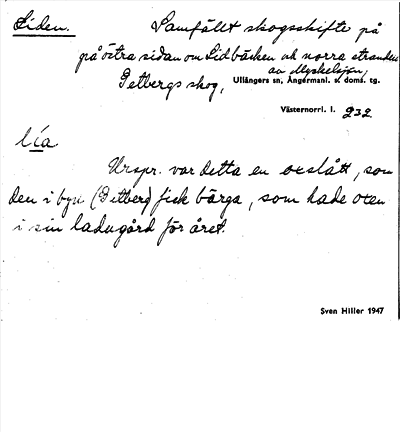 Liden.
Samfällt skogsskifte på
på östra sidan om Lidbäcken och norra stranden
av Myckelsjön,
Detbergs skog,
Ullångers sn, Ångermanl. s. doms. tg.
Västernorrl. l. 232
lía
Urspr. var detta en oxslått, som
den i byn (Detberg) fick bärga, som hade oxen
i sin ladugård för året.
Sven Hiller 1947